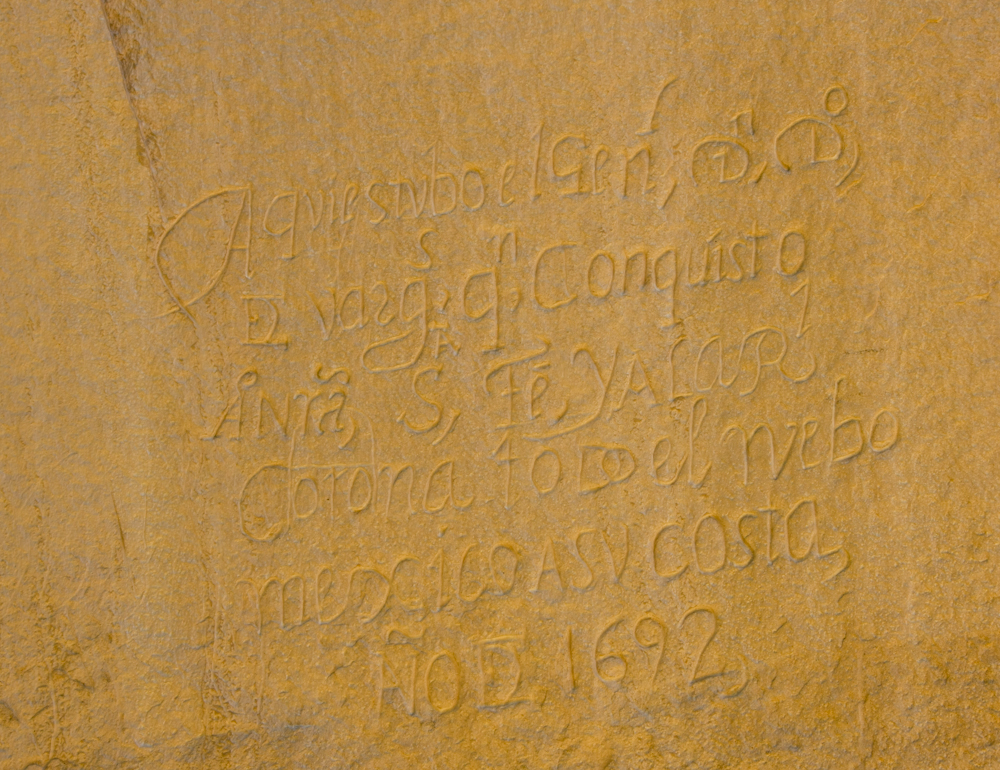 Aqui estubo el Genl, Dn, Do,
DE vargs, qn, Conquisto
Â Nrã, S, Fê, Y A la R
Corona todo el nvebo
mexico A sv costa,
AÑO DE 1692,